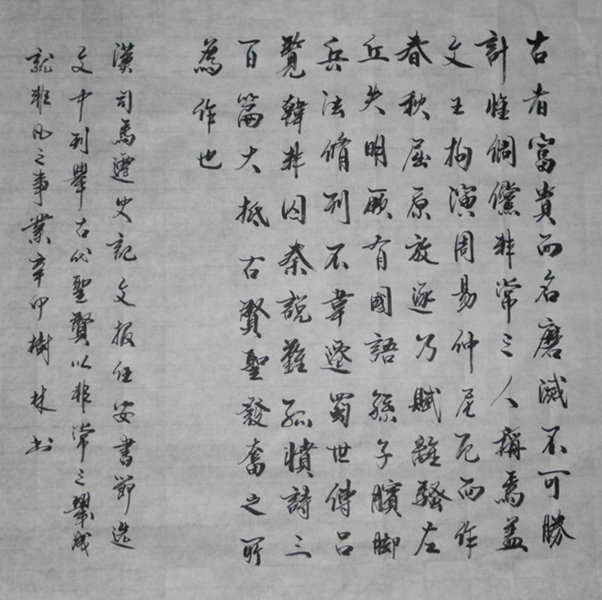 古者富貴而名磨滅不可勝
計惟倜儻非常之人稱焉蓋
文王拘演周易仲尼厄而作
春秋屈原放逐乃賦離騷左
丘失明厥有國語孫子臏脚
兵法脩列不韋遷蜀世傳呂
覽韓非囚秦說難孤憤詩三
百篇大抵古賢聖發奮之所
為作也
漢司馬遷史記文報任安書節選
文中列舉古代聖賢以非常之舉成
就非凡之事業辛卯樹林書